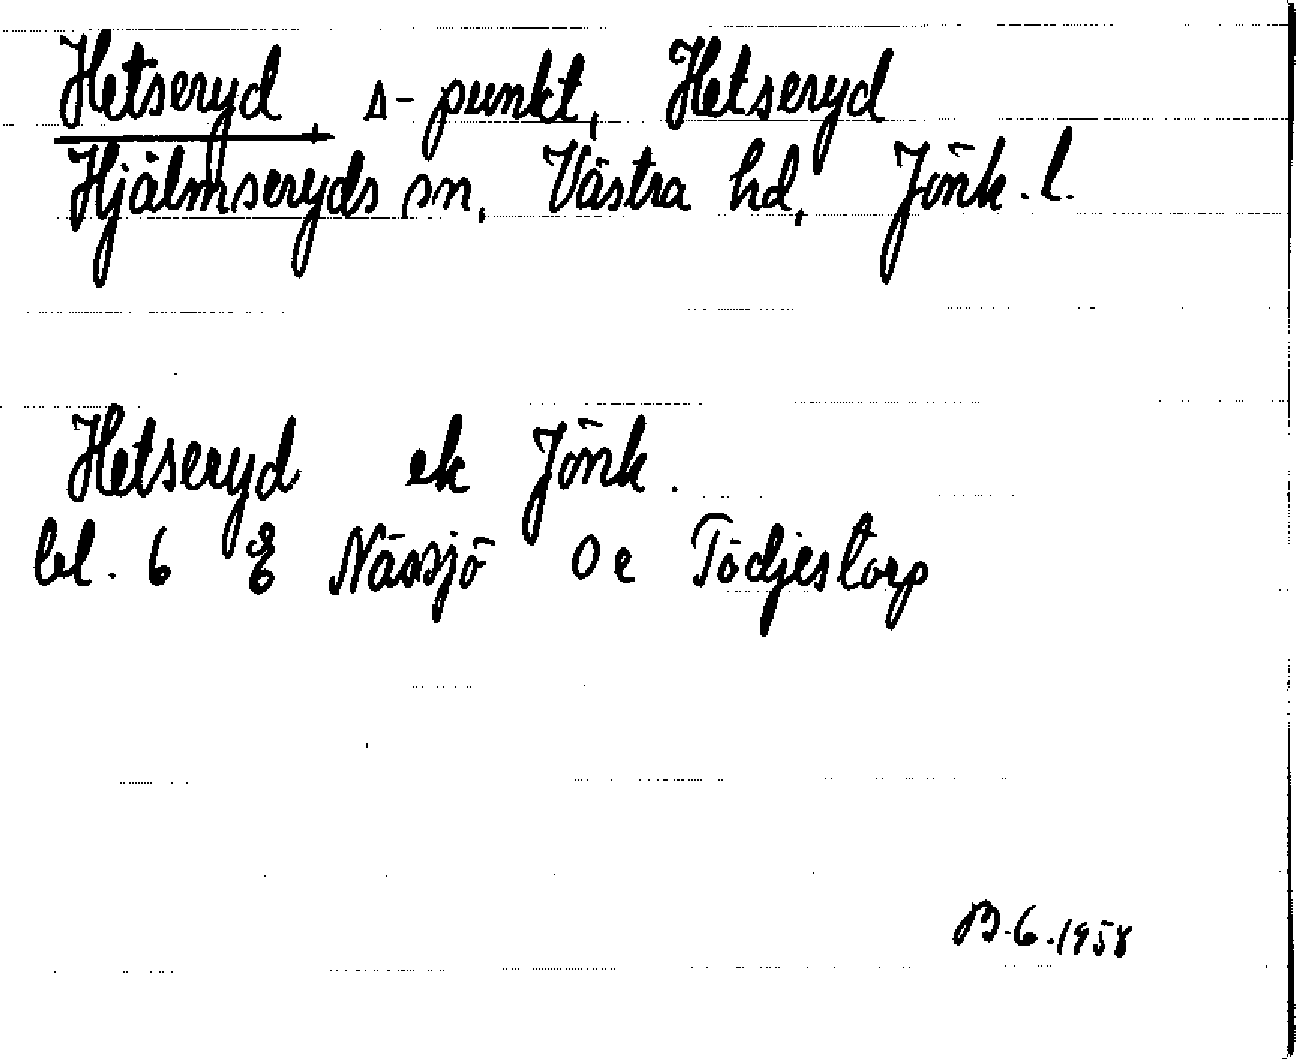 Hetseryd, Δ-punkt, Hetseryd
Hjälmseryds sn, Västra hd, Jönk. l.
Hetseryd ek Jönk.
bl. 6 E Nässjö 0 e Tödjestorp
B.G. 1958